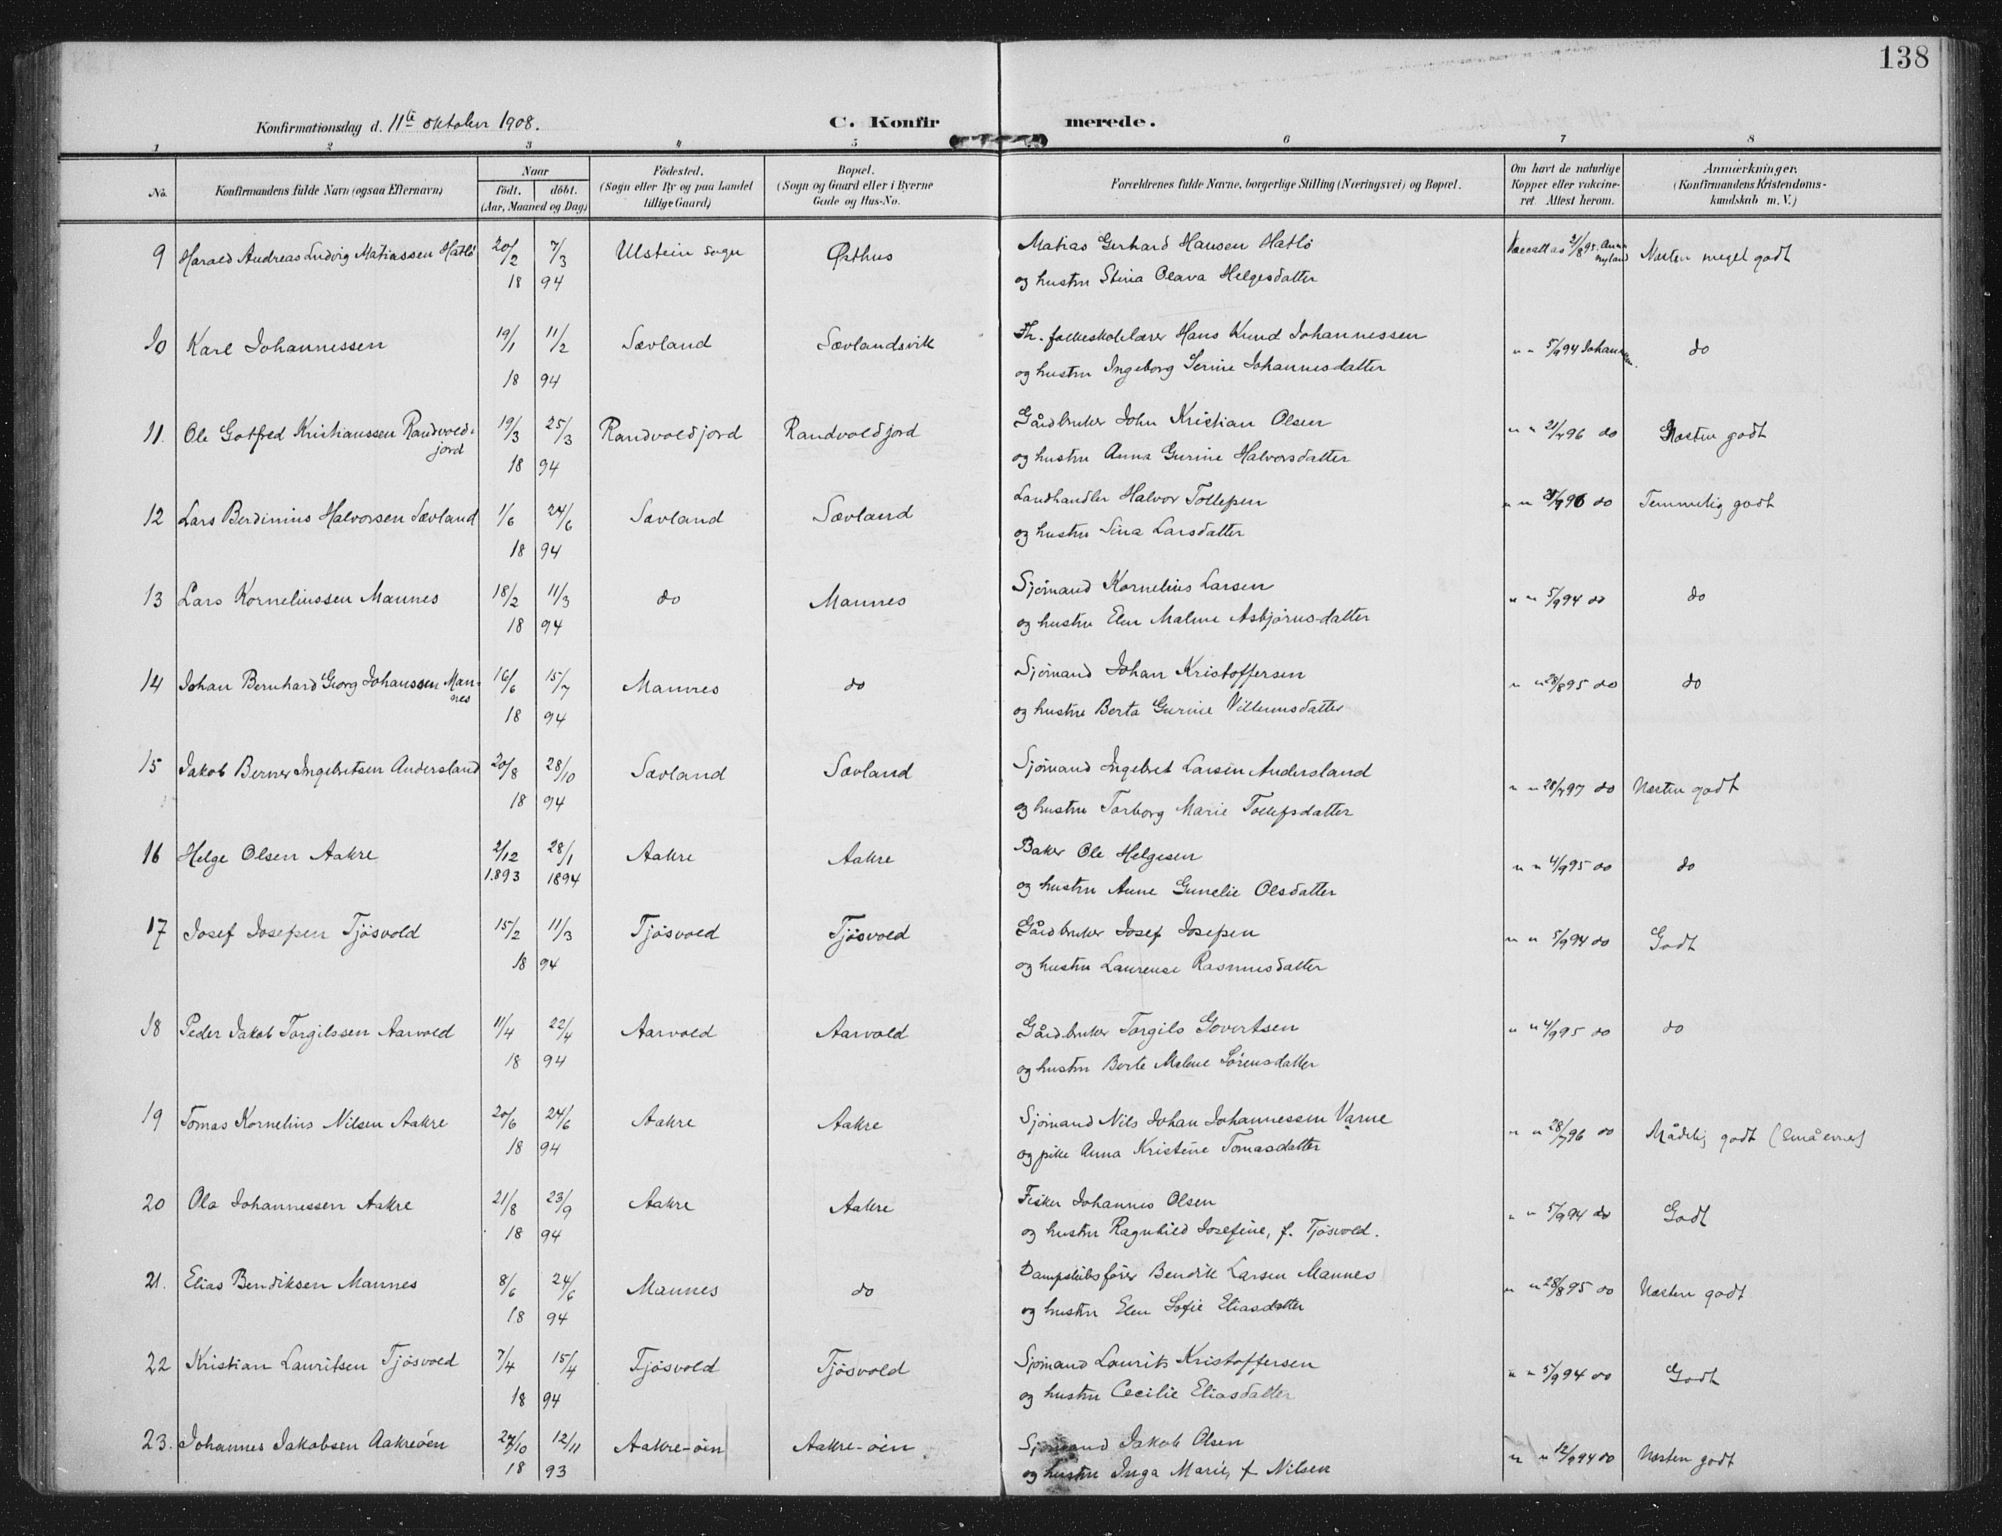 138
Konfirmationsdag d. 11te oktober 1908.
C. Konfirmerede.
1 2 3 4 5 6 7 8
No.
Konfirmandens fulde Navn (ogsaa Efternavn)
Naar
födt. döbt.
(Aar, Maaned og Dag)
Födested.
(Sogn eller By og paa Landet
tillige Gaard)
Bopæl.
(Sogn og Gaard eller i Byerne
Gade og Hus-No.
Forældrenes fulde Navne, borgerlige Stilling (Næringsvei) og Bopæl.
Om havt de naturlige
Kopper eller vakcine-
ret. Attest herom.
Anmærkninger.
(Konfirmandens Kristendoms-
kundskab m. V.)
9 Harald Andreas Ludvig Matiassen Hatlö 20/2 7/3 Ulstein sogn Østhus Matias Gerhard Hansen Hatlö 2/8 95. Anna Næsten meget godt
Nyland
18 94 og hustru Stina Olava Helgesdatter
10 Karl Johannessen 19/1 11/2 Sævland Sævlandsvik Fh. folkeskolelærer Hans Knud Johannessen " " 5/9 94 do
18 94 og hustru Ingeborg Serine Johannesdatter
11. Ole Gotfred Kristianssen Randvold- 19/3 25/3 Randvoldjord Randvoldjord Gårdbruker John Kristian Olsen " " 21/7 96 do Næsten godt
jord
18 94 og hustru Anna Gurine Halvorsdatter
12 Lars Berdinius Halvorsen Sævland 1/6 24/6 Sævland Sævland Landhandler Halvor Tollefsen " " 96 do Temmelig godt
18 94 og hustru Sina Larsdatter
13 Lars Korneliussen Mannes 18/2 11/3 do Mannes Sjömand Kornelius Larsen " " 5/9 94 do do
18 94 og hustru Elen Malene Asbjörnsdatter
14 Johan Bernhard Georg Johanssen Man- 16/6 15/7 Mannes do Sjömand Johan Kristoffersen " " 28/8 95 do do
nes
18 94 og hustru Berta Gurine Villumsdatter
15 Jakob Berner Ingebretsen Andersland 20/8 28/10 Sævland Sævland Sjömand Ingebret Larsen Andersland " " 28/7 97 do Næsten godt
18 94 og hustru Torborg Marie Tollefsdatter
16 Helge Olsen Aakre 2/12 28/1 Aakre Aakre Baker Ole Helgesen " " 4/9 95 do do
1893 1894 og hustru Anne Gunelie Olsdatter
17 Josef Josefsen Tjösvold 15/2 11/3 Tjösvold Tjösvold Gårdbruker Josef Josefsen " " 5/9 94 do Godt
18 94 og hustru Laurense Rasmusdatter
18 Peder Jakob Torgilssen Aarvold 11/4 22/4 Aarvold Aarvold Gårdbruker Torgils Govertsen " " 4/9 95 do do
18 94 og hustru Berte Malene Sörensdatter
19 Tomas Kornelius Nilsen Aakre 20/6 24/6 Aakre Aakre Sjömand Nils Johan Johannessen Varne " " 28/7 96 do Mådelig godt (små evner)
18 94 og pike Anna Kristine Tomasdatter
20 Ola Johannessen Aakre 21/8 23/9 Aakre Aakre Fisker Johannes Olsen " " 5/9 94 do Godt
18 94 og hustru Ragnhild Josefine, f. Tjösvold.
21. Elias Bendiksen Mannes 8/6 24/6 Mannes do Dampskibsförer Bendik Larsen Mannes " " 28/8 95 do Næsten godt
18 94 og hustru Elen Sofie Eliasdatter
22 Kristian Lauritsen Tjösvold 7/4 15/4 Tjösvold Tjösvold Sjömand Laurits Kristoffersen " " 5/9 94 do Godt
18 94 og hustru Cecilie Eliasdatter
23. Johannes Jakobsen Aakreöen 27/10 12/11 Aakre-öen Aakre-öen Sjömand Jakob Olsen " " 12/9 94 do Næsten godt
18 93 og hustru Inga Marie, f. Nilsen